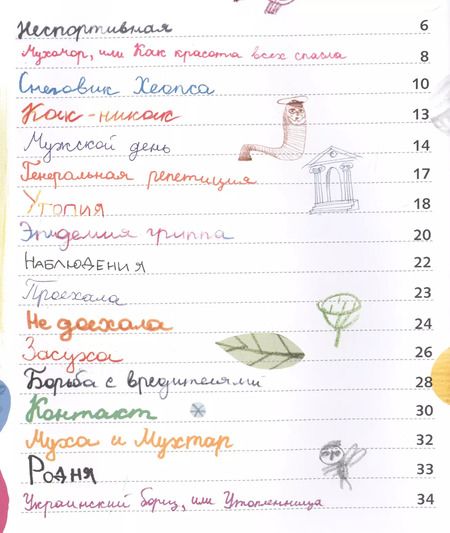 Неспортивная 6
Мухомор, или Как красота всех спасла 8
Снеговик Хеопса 10
Как-никак 13
Мужской день 14
Генеральная репетиция 17
Утопия 18
Эпидемия гриппа 20
НАБЛЮДЕНИЯ 22
Проехала 23
Не доехала 24
Засуха 26
Борьба с вредителями 28
Контакт 30
Муха и Мухтар 32
РОДНЯ 33
Украинский борщ, или Утопленница 34